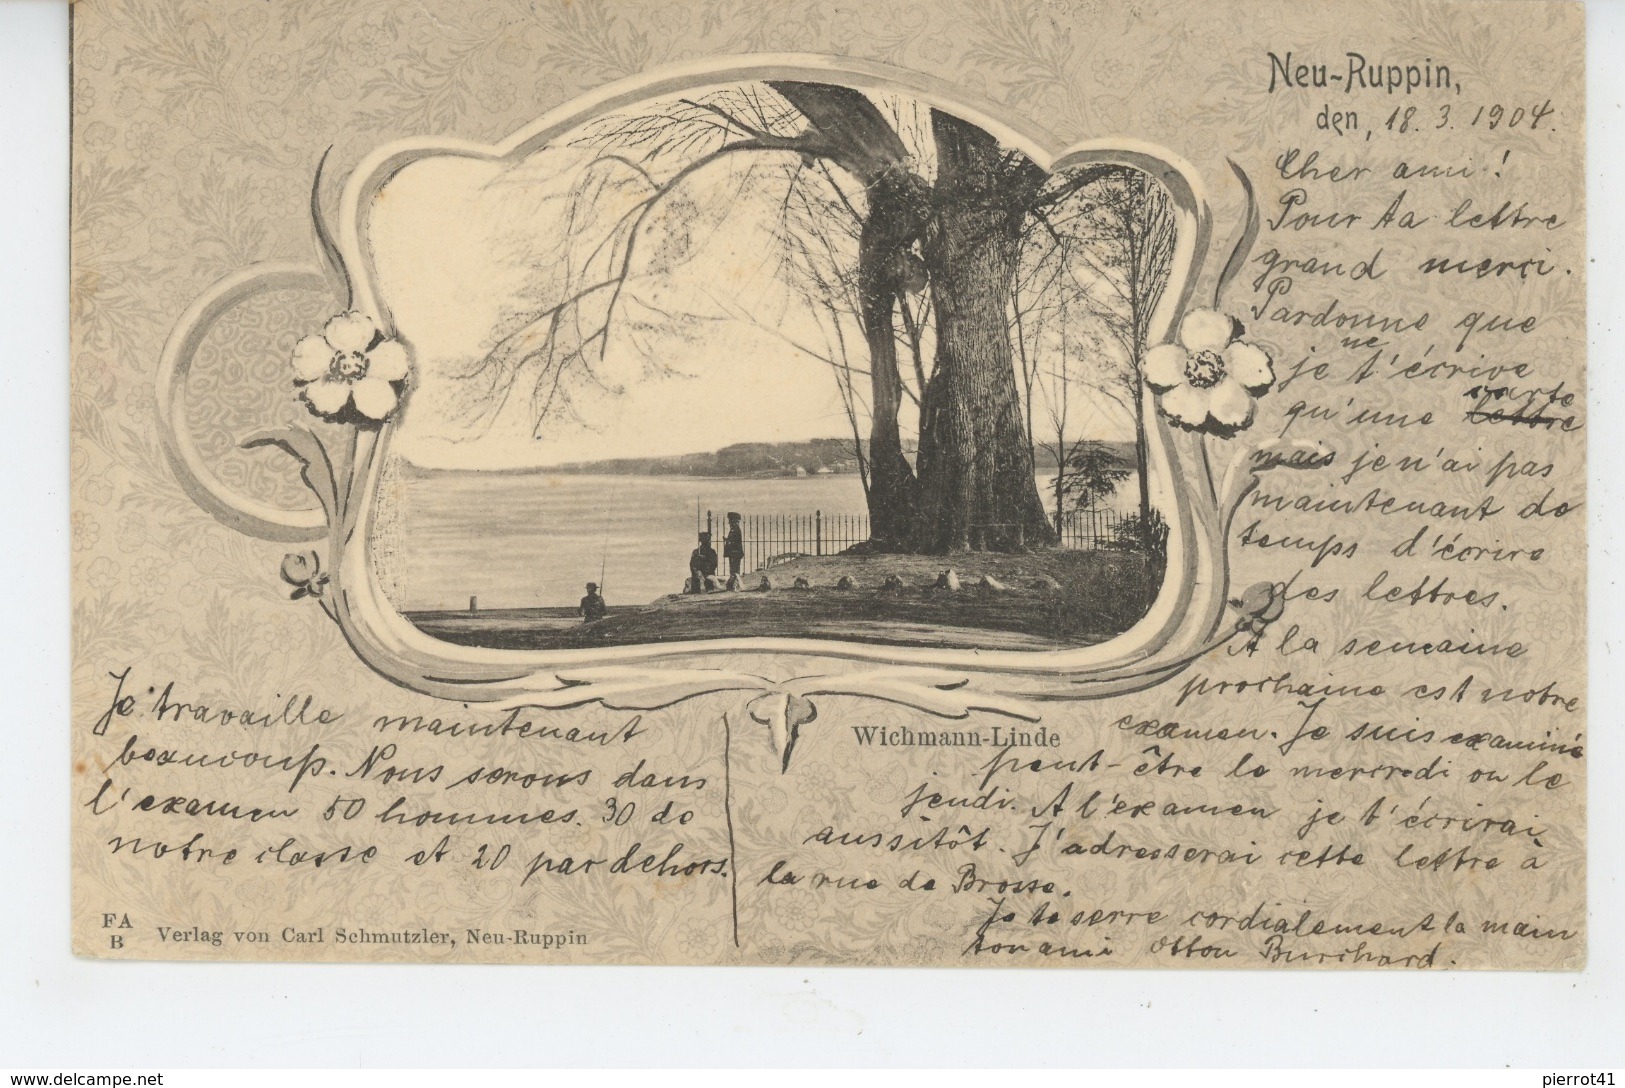 Neu-Ruppin,
den, 18. 3. 1904.
Cher ami!
Pour ta lettre
grand merci.
Pardonne que
je ne t'écrive
qu'une lettre carte
mais je n'ai pas
maintenant de
temps d'écrire
des lettres.
A la semaine
prochaine est notre
examen. Je suis examiné
peut-être le mercredi ou le
jeudi. A l'examen je t'écrirai
aussitôt. J'adresserai cette lettre à
la rue de Brosse.
Je te serre cordialement la main
ton ami Otton Burchard.
Wichmann-Linde
Je travaille maintenant
beaucoup. Nous serons dans
l'examen 50 hommes. 30 de
notre classe et 20 par dehors.
FA
B
Verlag von Carl Schmutzler, Neu-Ruppin
www.delcampe.net
pierrot41